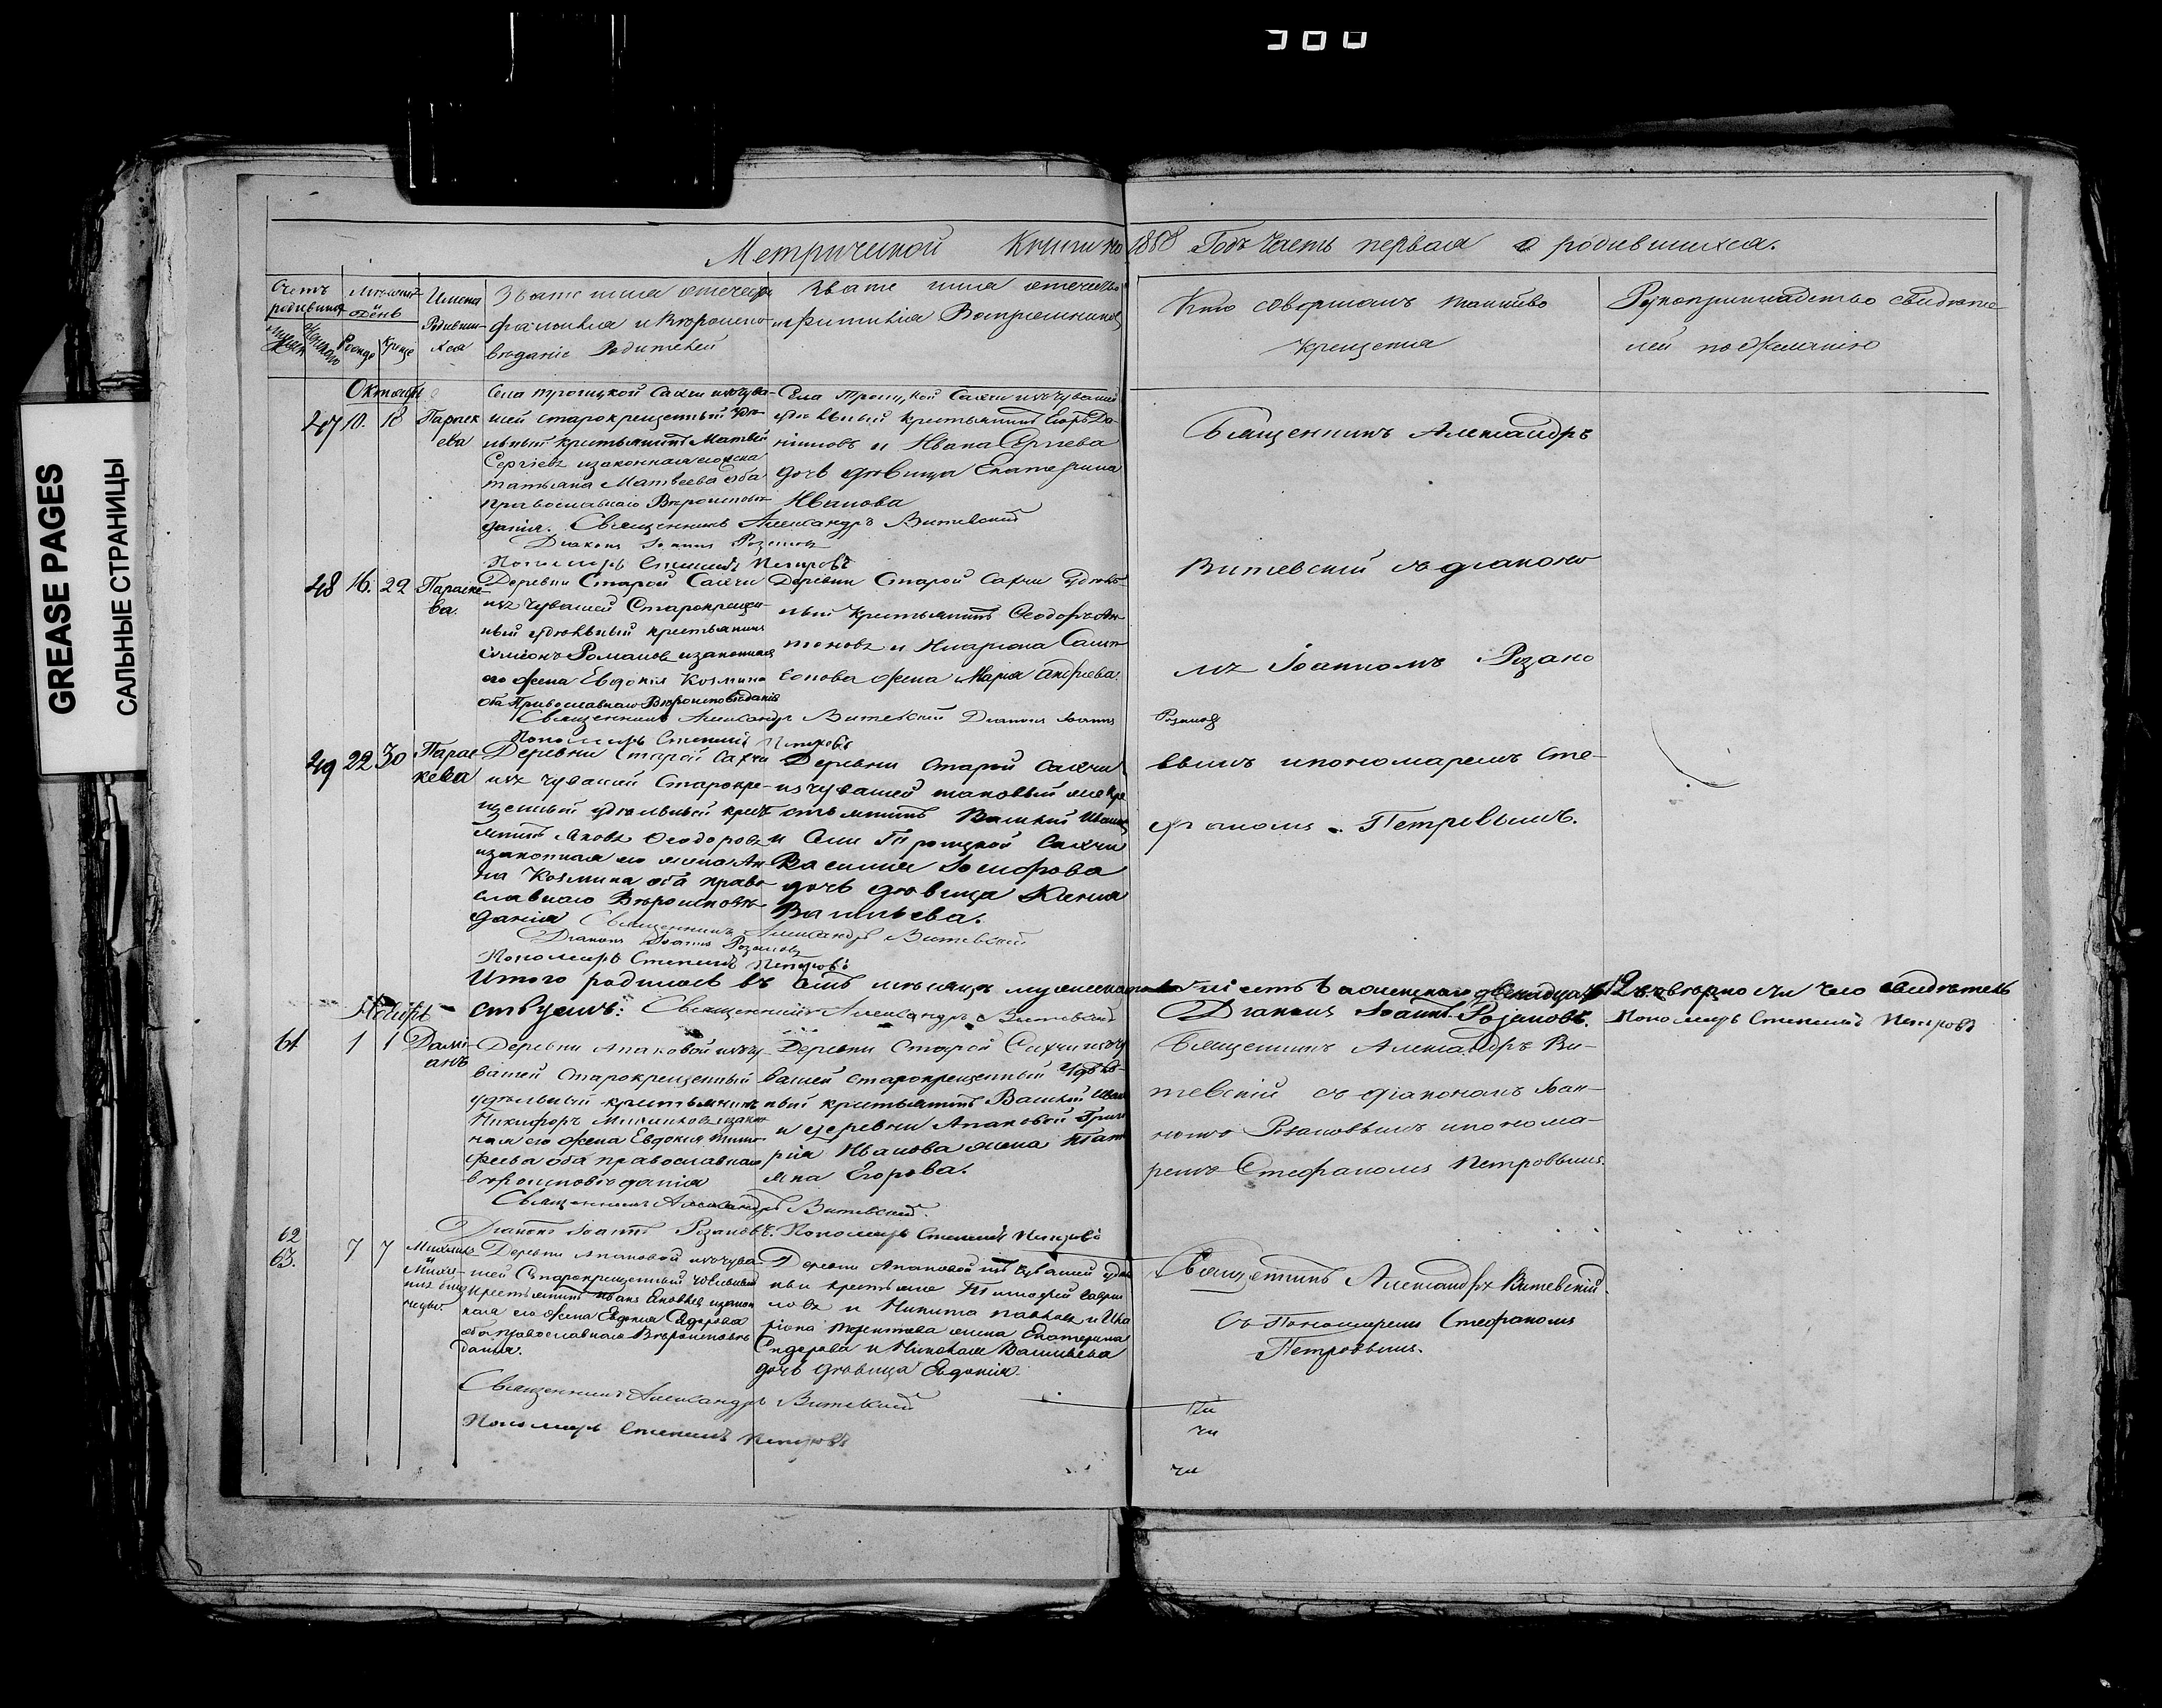 GREASE PAGES
САЛЬНЫЕ СТРАНИЦЫ
Метрической Книги на 1858 Годъ Часть первая о родившихся.
Счетъ родивших
Мѣсяцъ и день
Имена Родивших
Званіе имя отечество
фамилія и Вѣроиспо-
вѣданіе Родителей
Званіе имя отечество
и фамилія Воспріемниковъ
Кто совершалъ таинство
Крещенія
Рукоприкладство свидѣте
лей по желанію
Октябрь
47 10. 18 Параск
ева
Села Троицкой Сахчи изъ чува-
шей старокрещенный удѣ-
льный крестьянинъ Матвѣй
Сергіевъ и законная его жена
Татьяна Матвеева оба
православнаго Вѣроисповѣ
данія. Священникъ Александръ Витевский
Діаконъ Іоаннъ Розановъ
Пономарь Степанъ Петровъ
Села Троицкой Сахчи изъ чувашей
удѣльный крестьянинъ Егоръ Да-
ниловъ и Ивана Сергіева
дочь дѣвица Екатерина
Иванова
Священникъ Александръ
Витевский съ діаконо
мъ Іоанномъ Розано
Розанов
вымъ и пономаремъ Сте-
фаномъ Петровымъ.
48 16. 22 Параске-
ва.
Деревни Старой Сахчи
изъ чувашей Старокрещен-
ный удѣльный крестьянинъ
Симеонъ Романов и законная
его жена Евдокія Козмина
оба Православнаго Вѣроисповѣданія
Священникъ Александръ Витевский Діаконъ Іоаннъ
Пономарь Степанъ Петровъ
Деревни Старой Сахчи удѣль-
ный крестьянинъ Феодоръ Ан
тоновъ и Илариона Самп
сонова жена Марія Андрѣева.
49 22 30 Парас
кева
Деревни Старой Сахчи
изъ чувашей Старокре-
щенный удѣльный крест
янинъ Яковъ Феодоровъ
и законная его жена Ан
на Козмина оба право-
славнаго Вѣроисповѣ-
данія Священникъ Александръ Витевский
Діаконъ Іоаннъ Розановъ
Пономарь Степанъ Петровъ
Деревни Старой Сахчи
из чувашей таковый же кре
стьянинъ Василий Иванов
и Села Троицкой Сахчи
Василия Іосифова
дочь дѣвица Ксенія
Васильева.
Итого родилось въ семъ мѣсяцѣ мужескаго
шесть женскаго двенадцать 12 вѣрно
ствуемъ: Священникъ Александръ Витевский
Діаконъ Іоаннъ Розановъ. Пономарь Степанъ Петровъ
Ноябрь
61 1 1 Дамі-
анъ
Деревни Апаковой изъ чу-
вашей Старокрещенный
удѣльный крестьянинъ
Никифоръ
ная его жена Евдокія Тимо-
феева оба православнаго
вѣроисповѣданія
Священникъ Александръ Витевский.
Діаконъ Іоаннъ Розановъ. Пономарь Степанъ Петровъ
Деревни Старой Сахчи изъ чу
вашей старокрещенный Удѣль-
ный крестьянинъ Василий Иван
и деревни Апаковой Григо
рія Иванова жена Тать
яна Егорова.
Священникъ Александръ Ви-
тевский съ діакономъ Іоан-
номъ Розановымъ и понома-
ремъ Стефаномъ Петровымъ.
62
63. 7 7 Михаилъ
и Михаи
Деревни Апаковой изъ чува-
шей Старокрещенный удѣльный
крестьянинъ Иванъ Яковлев и закон
ная его жена Евдокія Сидорова
оба православнаго Вѣроисповѣ
данія.
Священникъ Александръ Витевский
Пономарь Степанъ Петровъ
Деревни Апаковой изъ чувашей удѣль
ные крестьяне Тимофей Гаври
ловъ и Никита Павловъ и Ила
ріона Терентьева жена Екатерина
Сидорова и Николая Васильева
дочь дѣвица Евдокія.
Священникъ Александръ Витевский.
Съ Пономаремъ Стефаномъ
Петровымъ.